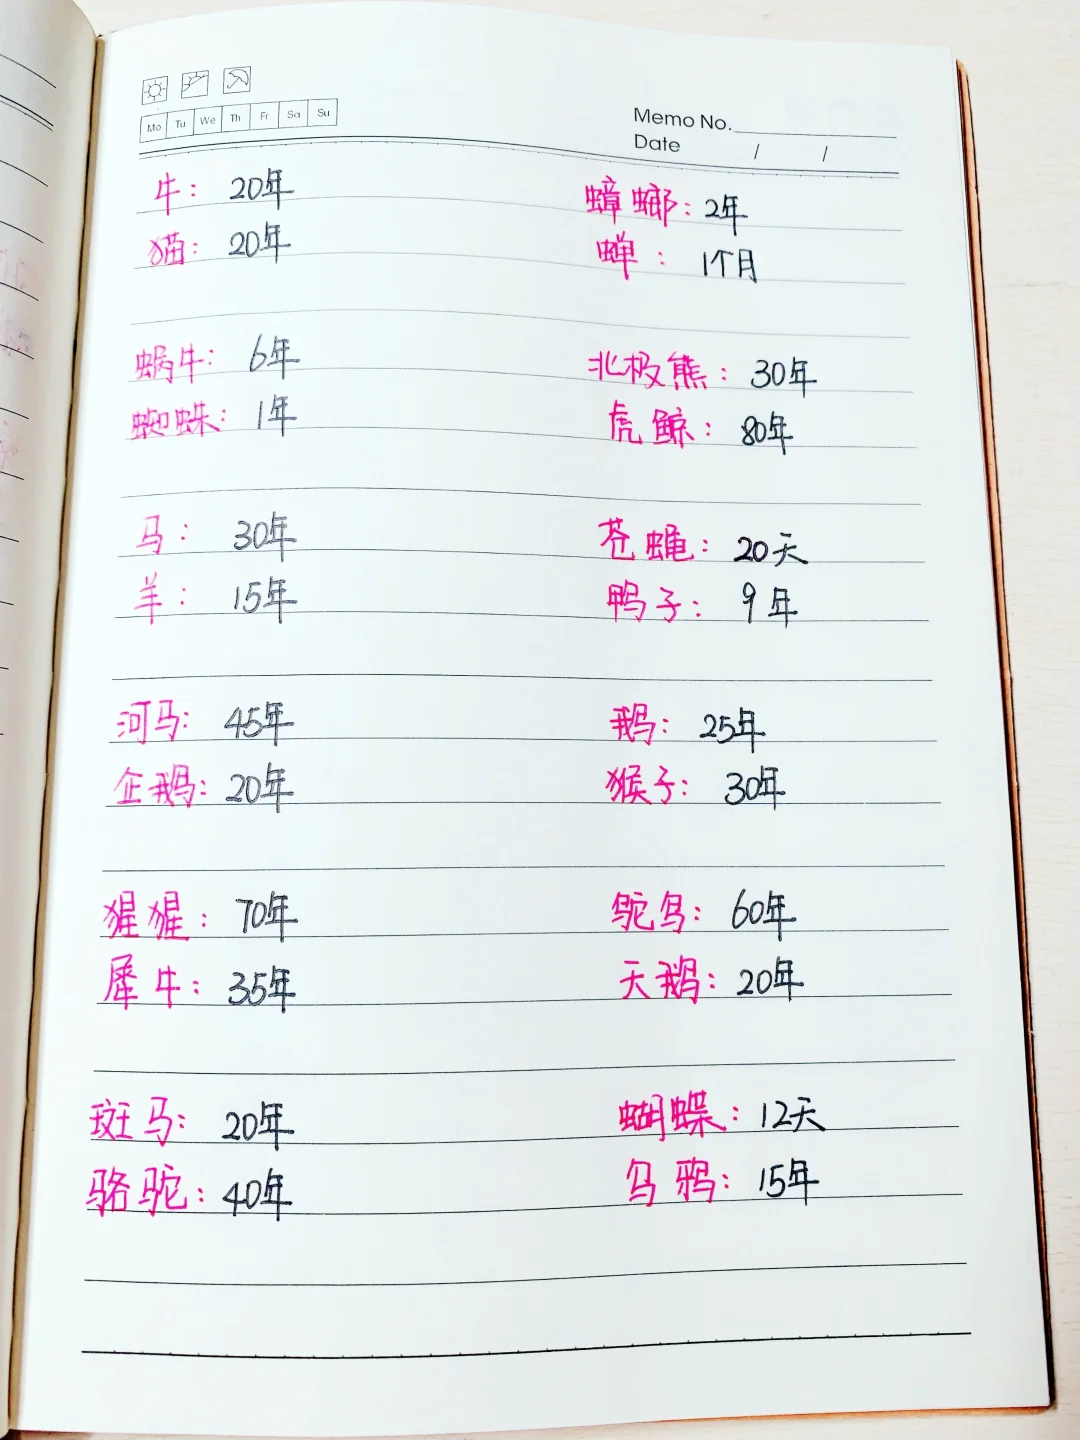 Mo Tu We Th Fr Sa Su
Memo No.
Date / /
牛: 20年
猫: 20年
蜗牛: 6年
蜘蛛: 1年
马: 30年
羊: 15年
河马: 45年
企鹅: 20年
猩猩: 70年
犀牛: 35年
斑马: 20年
骆驼: 40年
蟑螂: 2年
蝉: 1个月
北极熊: 30年
虎鲸: 80年
苍蝇: 20天
鸭子: 9年
鹅: 25年
猴子: 30年
鸵鸟: 60年
天鹅: 20年
蝴蝶: 12天
乌鸦: 15年